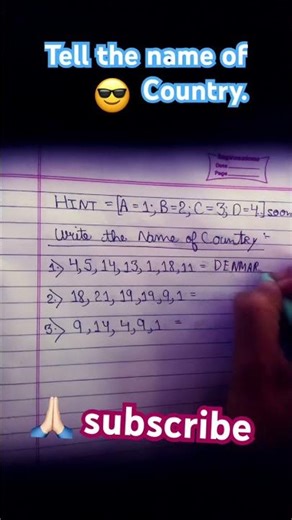 Tell the name of
😎 Country.
Date
Page
HINT = [A=1; B=2; C=3; D=4.] soon
Write the Name of Country :-
1.> 4,5,14,13,1,18,11 = DENMAR
2.> 18,21,19,19,9,1 =
3.> 9,14,4,9,1 =
🙏🏻 subscribe